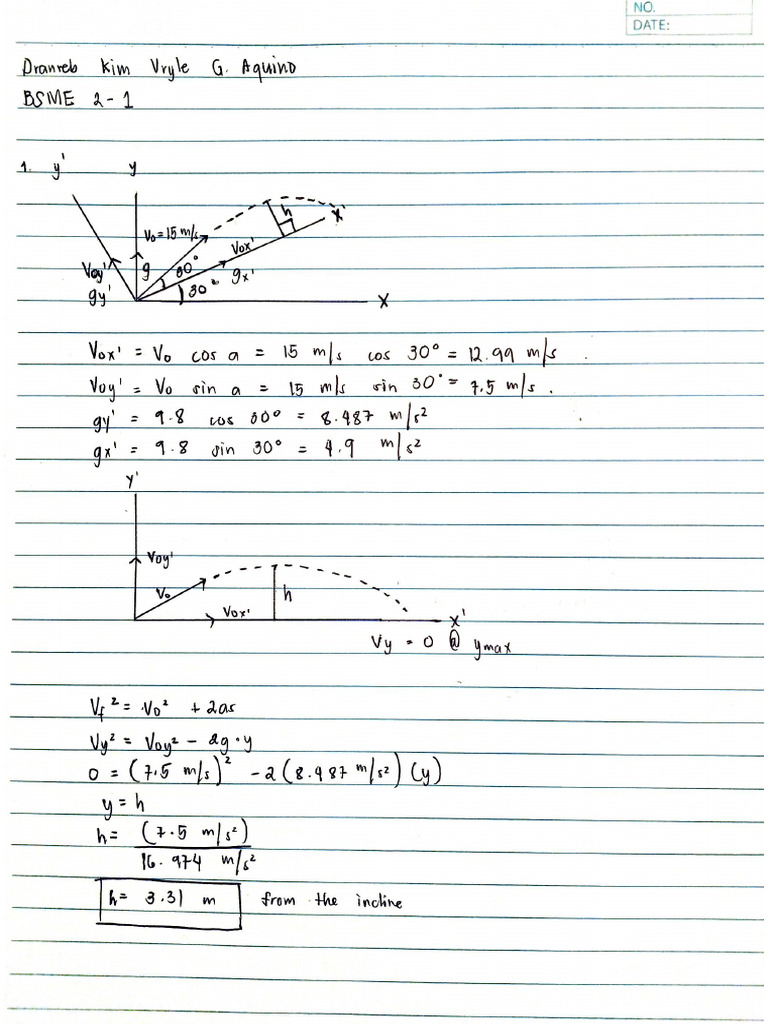 NO.
DATE:
Dranreb Kim Vryle G. Aquino
BSME 2-1
1. y' y
V₀ = 15 m/s
h
x'
V₀x'
V₀y'
g
30°
gx'
gy'
30°
x
V₀x' = V₀ cos a = 15 m/s cos 30° = 12.99 m/s .
V₀y' = V₀ sin a = 15 m/s sin 30° = 7.5 m/s .
gy' = 9.8 cos 30° = 8.487 m/s²
gx' = 9.8 sin 30° = 4.9 m/s²
y'
V₀y'
V₀
h
V₀x'
x'
Vy = 0 @ ymax
Vf² = V₀² + 2as
Vy² = V₀y² - 2g·y
0 = (7.5 m/s)² - 2(8.487 m/s²)(y)
y = h
h = (7.5 m/s²)
16.974 m/s²
h = 3.31 m from the incline